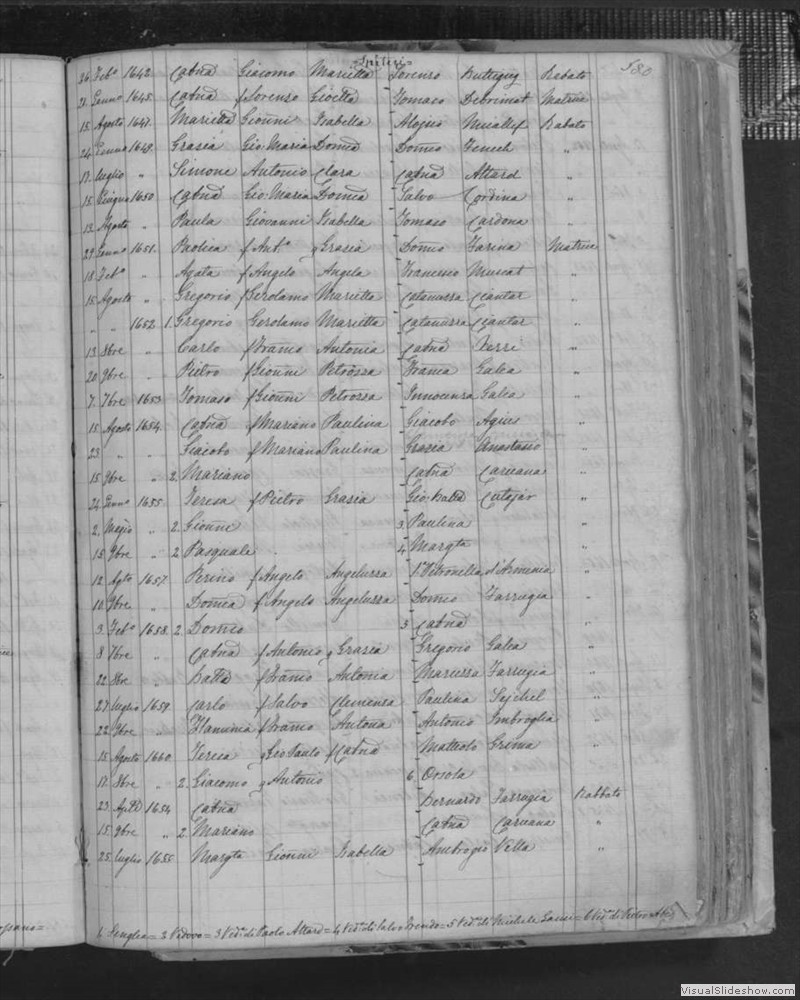 Spiteri =
580
26 Feb.º 1642 Catnā Giacomo Marietta Lorenzo Buttigieg Rabato
21 Gennº 1645 Catnā f Lorenzo Gioetta Tomaso Debrimat Matrice
15 Agosto 1647 Marietta Gionni Isabella Alojsio Muallef Rabato
24 Gennº 1649 Grazia Gio: Maria Domcā Domco Zenech "
17 luglio " Simone Antonio Clara Catnā Attard "
15 Giugno 1650 Catnā Gio: Maria Domcā Salvo Cordina "
15 Agosto " Paula Giovanni Isabella Tomaso Cardona "
29 Gennº 1651 Paolica f Antº q Grazia Domco Farina Matrice
18 Febº " Agata f Angelo Angela Francesco Muscat "
15 Agosto " Gregorio f Gerolamo Marietta Catanuzza Ciantar "
" " 1652 1. Gregorio Gerolamo Marietta Catanuzza Ciantar "
13 8bre " Carlo f Framo Antonia Catnā Xerri "
20 9bre " Pietro f Gionni Petrossa Franca Galea "
7 7bre 1653 Tomaso f Gionni Petrossa Innocenza Galea "
15 Agosto 1654 Catnā f Mariano Paulina Giacobo Agius "
23 " " Giacobo f Mariano Paulina Grazia Anastasio "
15 9bre " 2. Mariano Catnā Caruana "
24 Gennº 1655 Teresa f Pietro Grazia Gio: Batta Cutajar "
2 Magio " 2. Gionni 3 Paulina "
15 9bre " 2 Pasquale 4 Margta "
12 Agto 1657 Perino f Angelo Angeluzza 1. Petronella d'Armenia "
10 9bre " Domca f Angelo Angeluzza Domco Farrugia "
3 Febº 1658 2. Domco 3 Catnā "
8 7bre " Catnā f Antonio q Grazia Gregorio Galea "
22 8bre " Batta f Framo Antonia Mariuzza Farrugia "
27 luglio 1659 Carlo f Salvo Clemenza Paulina Sejchel "
22 9bre " Flaminia f Framo Antona Antonio Imbroglia "
15 Agosto 1660 Teresa q Gio Paulo f Catnā Matteolo Grima "
17 8bre " 2. Giacomo q Antonio 6 Orsola "
23 Aple 1654 Catnā Bernardo Farrugia Rabbato
15 9bre " 2. Mariano Catnā Caruana "
25 luglio 1655 Margta Gionni Isabella Ambrogio Vella "
1 Senglea = 2 Vedovo = 3 Vedª di Paolo Attard = 4 Vedª di Salvo = 5 Vedª di Michele = 6 Vedª di Pietro
VisualSlideshow.com